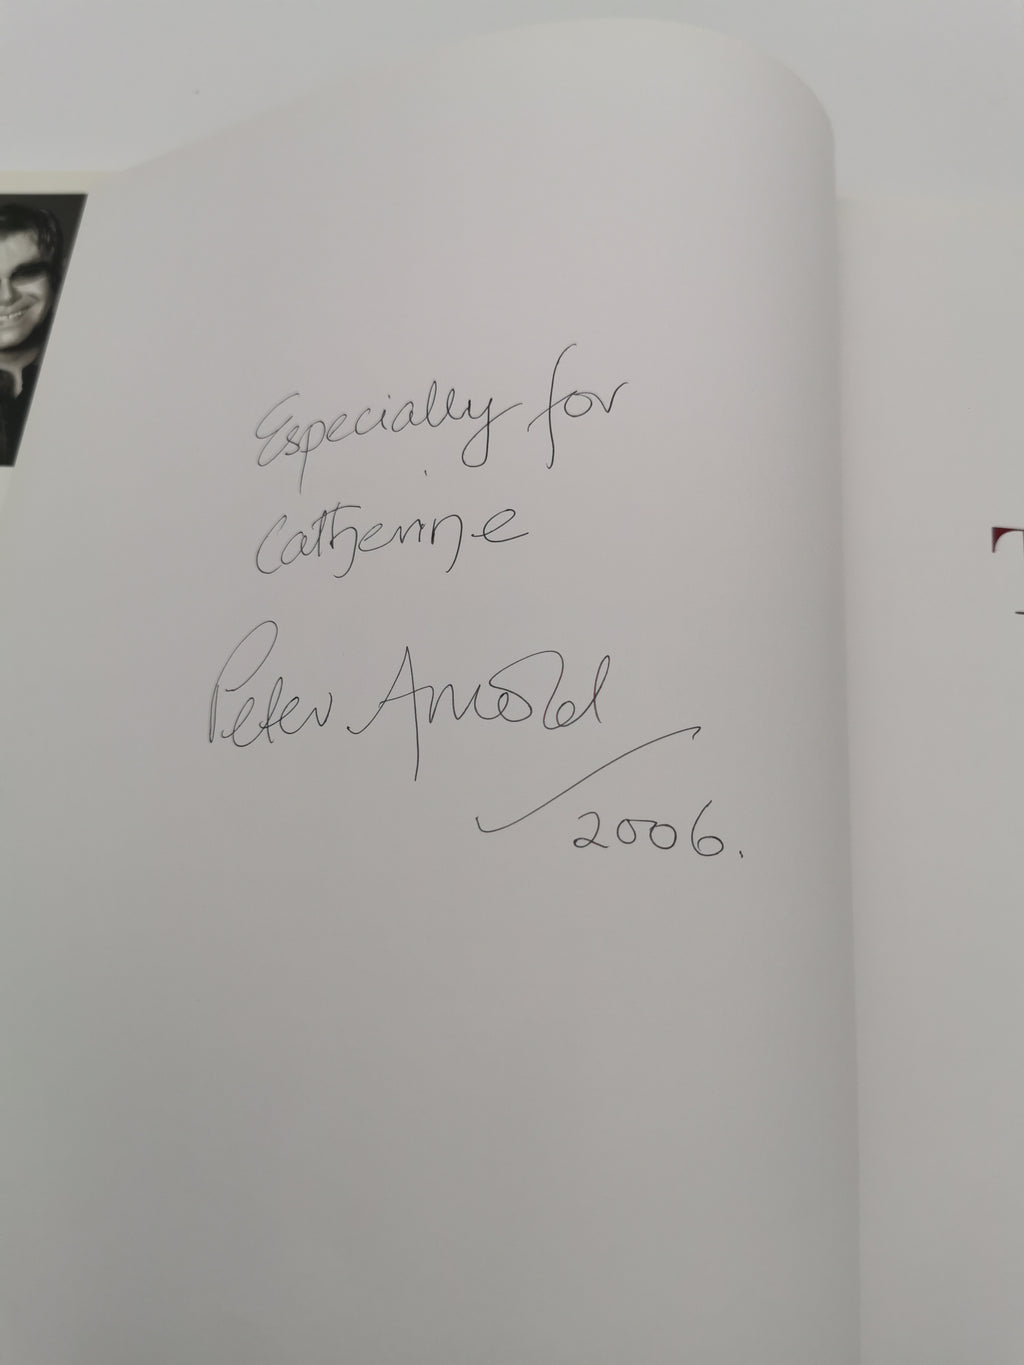 Especially for
Catherine
Peter Arnold
2006.
T